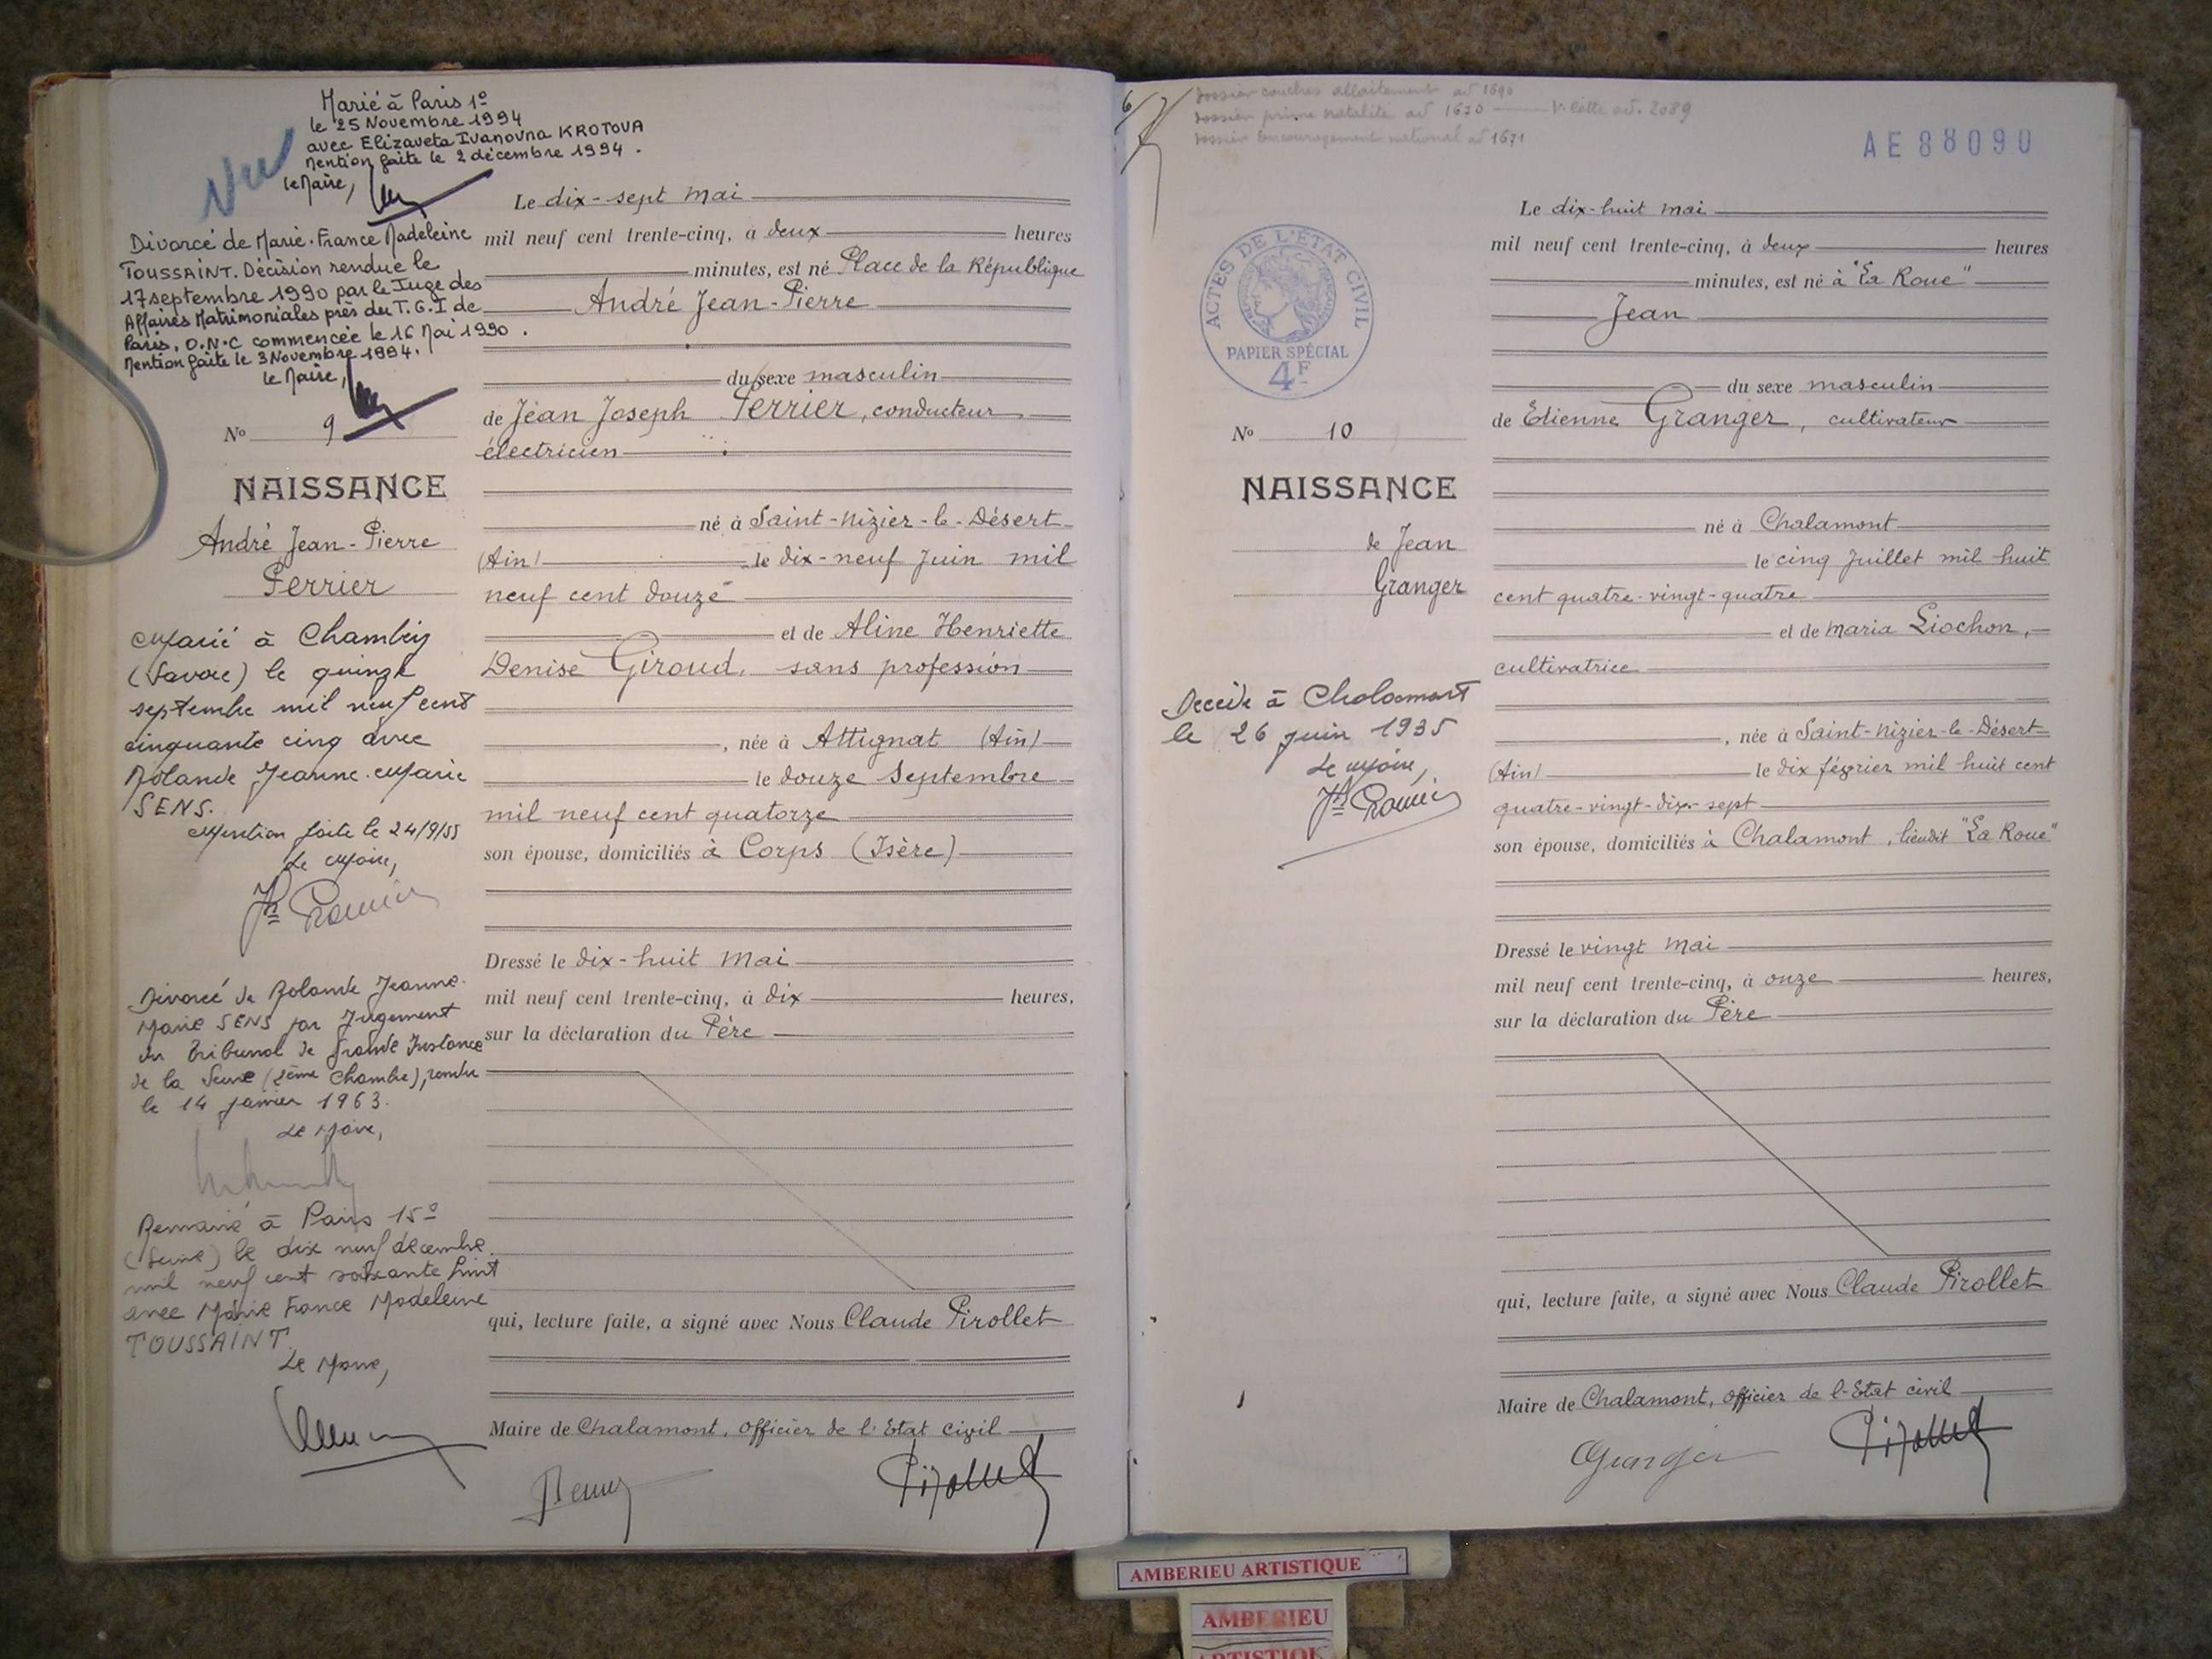 Marié à Paris 1º
le 25 Novembre 1994
avec Elizaveta Ivanovna KROTOVA
Mention faite le 2 décembre 1994.
le Maire,
Vu
Divorcé de Marie-France Madeleine
TOUSSAINT. Décision rendue le
17 septembre 1990 par le Juge des
Affaires Matrimoniales près du T.G.I de
Paris, O.N.C commencée le 16 Mai 1990.
Mention faite le 3 Novembre 1994.
le Maire,
No 9
NAISSANCE
André Jean-Pierre
Perrier
Marié à Chambéry
(Savoie) le quinze
septembre mil neuf cent
cinquante cinq avec
Rolande Jeanne-Marie
SENS.
Mention faite le 24/9/55
Le Maire,
Divorcé de Rolande Jeanne-
Marie SENS par Jugement
du Tribunal de Grande Instance
de la Seine (2ème Chambre), rendu
le 14 janvier 1963.
Le Maire,
Remarié à Paris 15º
(Seine) le dix neuf décembre
mil neuf cent soixante huit
avec Marie France Madeleine
TOUSSAINT.
Le Maire,
Le dix-sept Mai
mil neuf cent trente-cinq, à deux heures
minutes, est né Place de la République
André Jean-Pierre
du sexe masculin
de Jean Joseph Perrier, conducteur
électricien
né à Saint-Nizier-le-Désert
(Ain) le dix-neuf Juin mil
neuf cent douze
et de Aline Henriette
Denise Giroud, sans profession
, née à Attignat (Ain)
le douze Septembre
mil neuf cent quatorze
son épouse, domiciliés à Corps (Isère)
Dressé le dix-huit Mai
mil neuf cent trente-cinq, à dix heures,
sur la déclaration du Père
qui, lecture faite, a signé avec Nous Claude Pirollet
Maire de Chalamont, Officier de l'Etat civil
Pirollet
6
Dossier couches allaitement ad 1690
Dossier prime natalité ad 1670 ad. 2089
Dossier Encouragement national ad 1671
AE 88090
ACTES DE L'ÉTAT CIVIL
PAPIER SPÉCIAL
4F
No 10
NAISSANCE
de Jean
Granger
Décédé à Chalamont
le 26 juin 1935
Le Maire,
Le dix-huit Mai
mil neuf cent trente-cinq, à deux heures
minutes, est né à "La Roue"
Jean
du sexe masculin
de Etienne Granger, cultivateur
né à Chalamont
le cinq Juillet mil huit
cent quatre-vingt-quatre
et de Maria Liochon,
cultivatrice
, née à Saint-Nizier-le-Désert
(Ain) le dix février mil huit cent
quatre-vingt-dix-sept
son épouse, domiciliés à Chalamont, lieudit "La Roue"
Dressé le vingt Mai
mil neuf cent trente-cinq, à onze heures,
sur la déclaration du Père
qui, lecture faite, a signé avec Nous Claude Pirollet
Maire de Chalamont, Officier de l'Etat civil
Granger Pirollet
AMBERIEU ARTISTIQUE
AMBERIEU
ARTISTIQUE